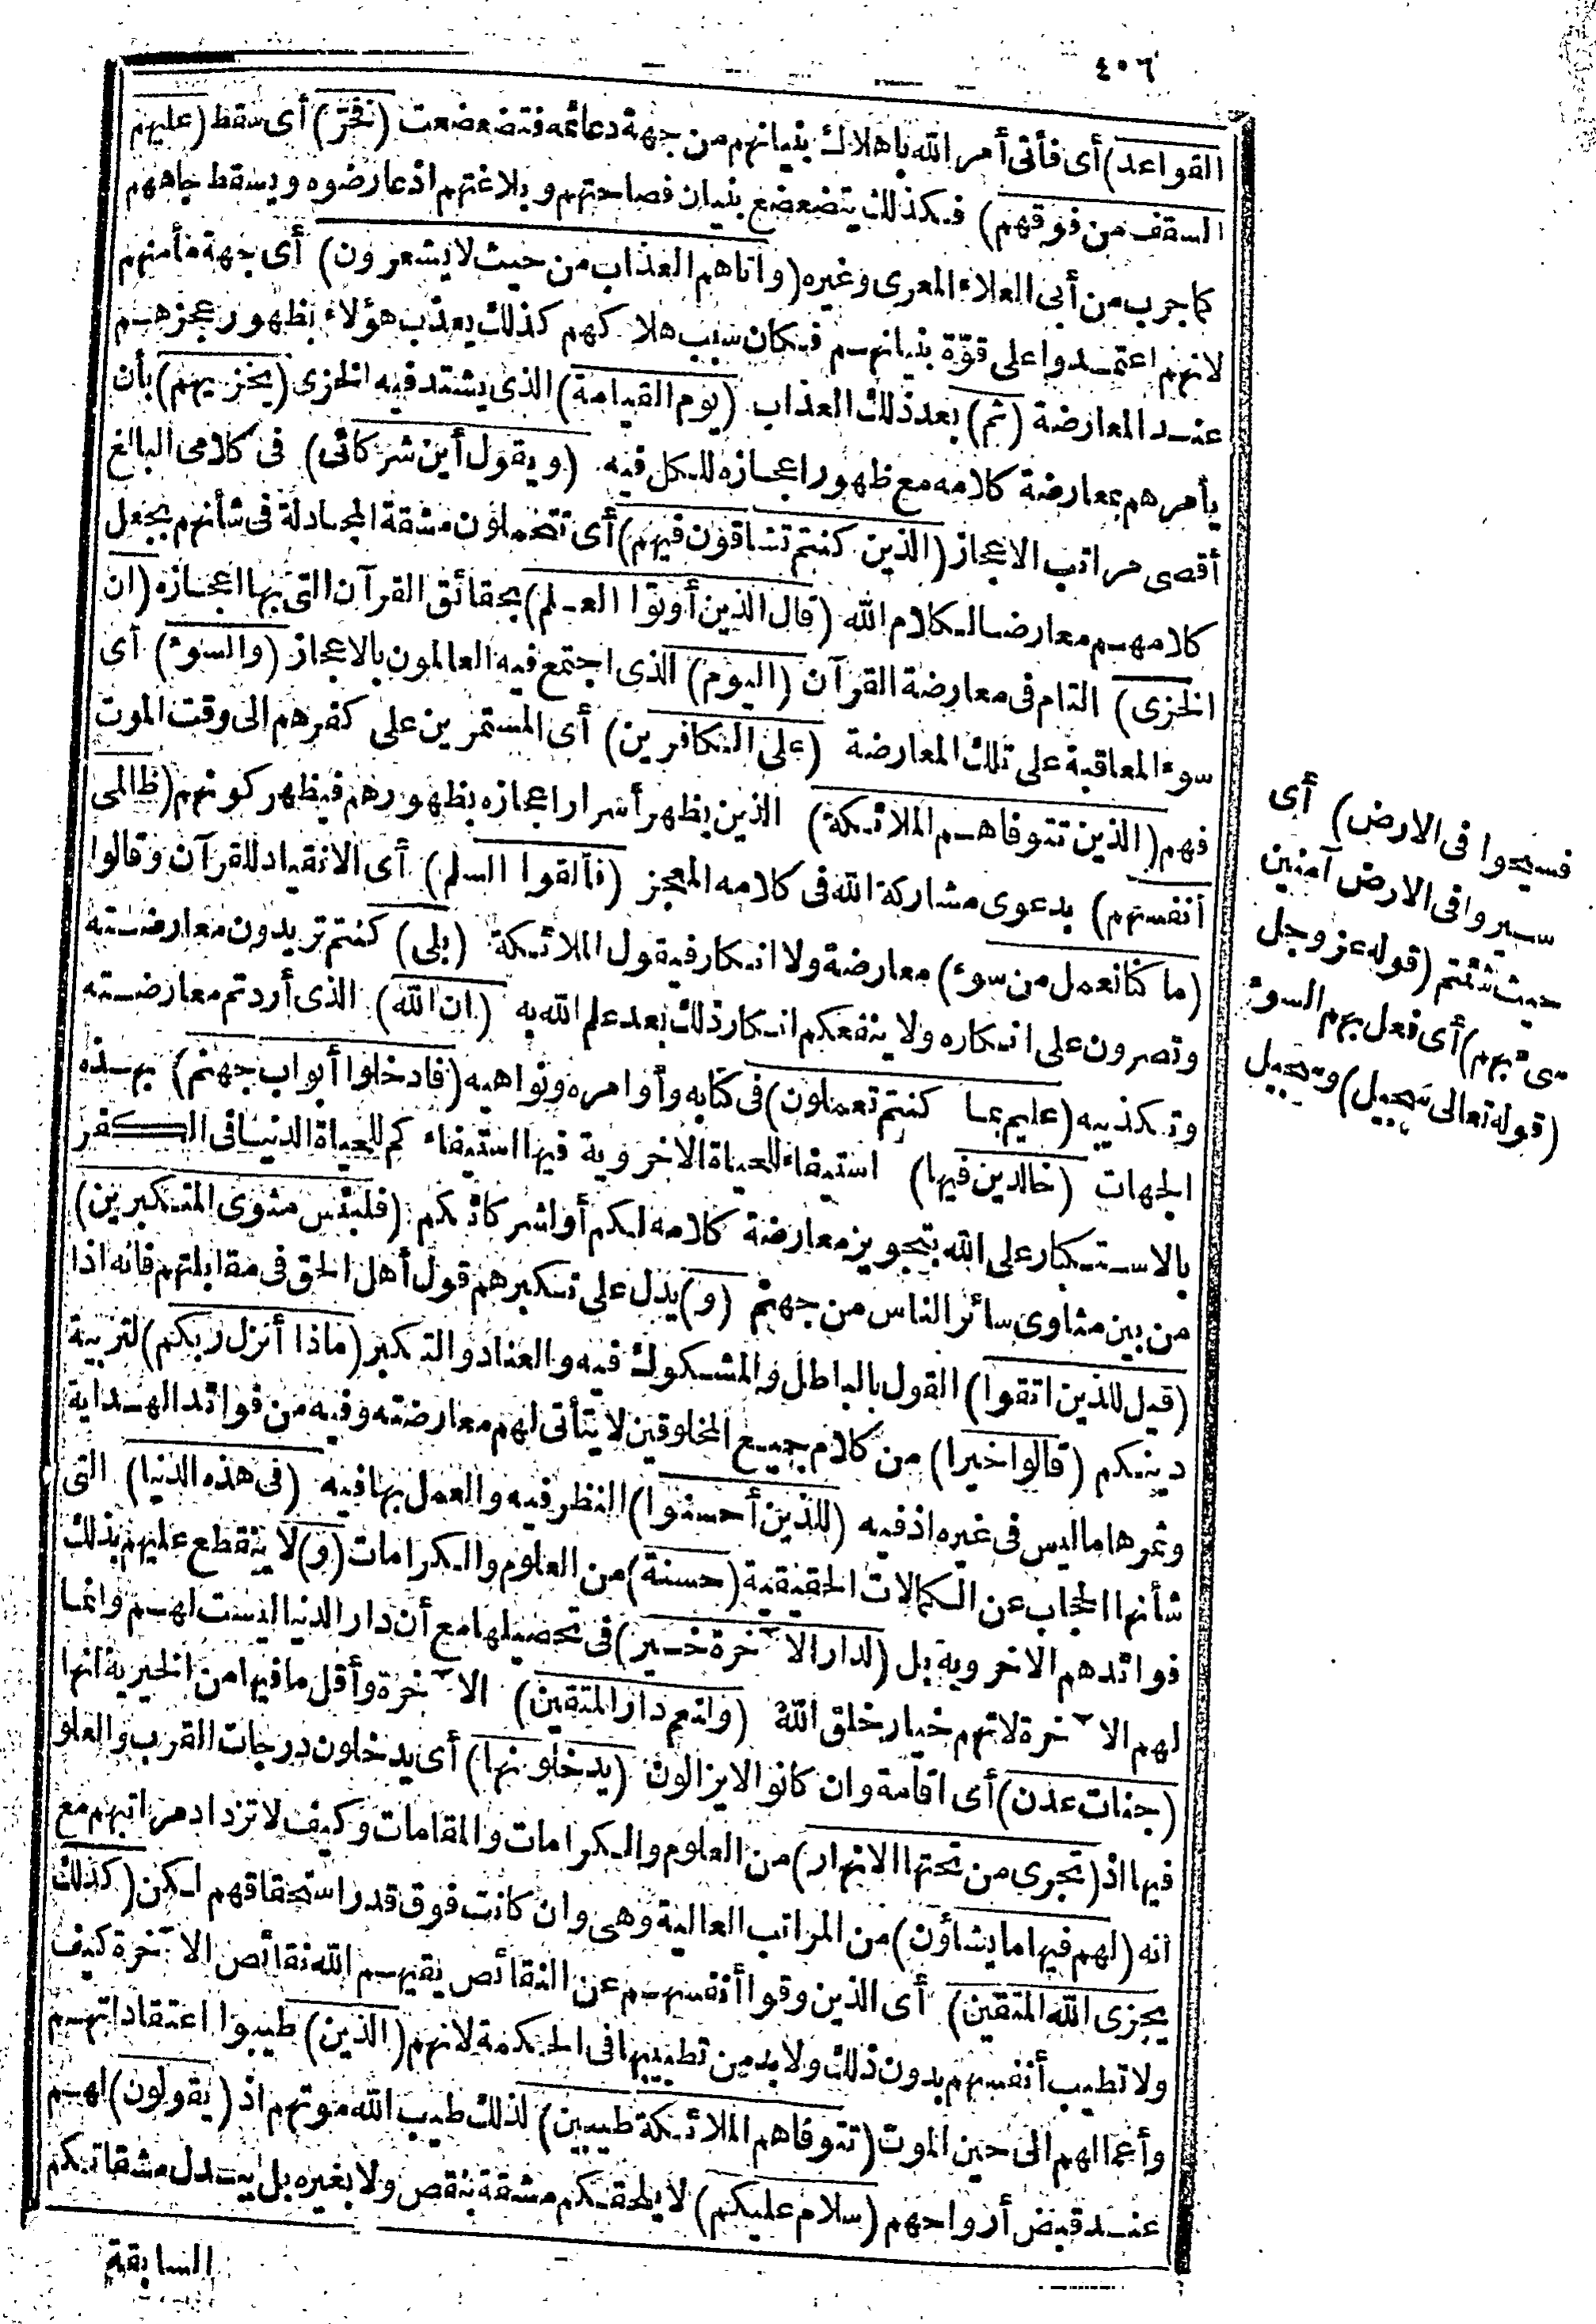 ٤٠٦
القواعد) أى فأتى أمر الله باهلاك بنيانهم من جهة دعائمه فتضعضعت (فخرّ) أى سقط (عليهم
السقف من فوقهم) فكذلك يتضعضع بنيان فصاحتهم وبلاغتهم اذ عارضوه ويسقط جاههم
كما جرب من أبى العلاء المعرى وغيره (وأتاهم العذاب من حيث لا يشعرون) أى جهة مأمنهم
لانهم اعتمدوا على قوّة بنيانهم فكان سبب هلاكهم كذلك يعذب هؤلاء بظهور عجزهم
عند المعارضة (ثم) بعد ذلك العذاب (يوم القيامة) الذى يشتد فيه الخزى (يخزيهم) بأن
يأمرهم بمعارضة كلامه مع ظهور اعجازه للكل فيه (ويقول أين شركائى) فى كلامى البالغ
أقصى مراتب الاعجاز (الذين كنتم تشاقون فيهم) أى تتحملون مشقة المجادلة فى شأنهم بجعل
كلامهم معارضا لكلام الله (قال الذين أوتوا العلم) بحقائق القرآن التى بها اعجازه (ان
الخزى) التام فى معارضة القرآن (اليوم) الذى اجتمع فيه العالمون بالاعجاز (والسوء) أى
سوء المعاقبة على تلك المعارضة (على الكافرين) أى المستمرين على كفرهم الى وقت الموت
فهم (الذين تتوفاهم الملائكة) الذين يظهر أسرار اعجازه بظهورهم فيظهر كونهم (ظالمى
أنفسهم) بدعوى مشاركة الله فى كلامه المعجز (فألقوا السلم) أى الانقياد للقرآن وقالوا
(ما كنا نعمل من سوء) معارضة ولا انكار فيقول الملائكة (بلى) كنتم تريدون معارضته
وتصرون على انكاره ولا ينفعكم انكار ذلك بعد علم الله به (ان الله) الذى أردتم معارضته
وتكذيبه (عليم بما كنتم تعملون) فى كتابه وأوامره ونواهيه (فادخلوا أبواب جهنم) بهذه
الجهات (خالدين فيها) استيفاء للحياة الاخروية فيها استيفاءكم للحياة الدنيا فى الكفر
بالاستكبار على الله بتجويز معارضة كلامه لكم أو لشركائكم (فلبئس مثوى المتكبرين)
من بين مثاوى سائر الناس من جهنم (و) يدل على تكبرهم قول أهل الحق فى مقابلتهم فانه اذا
(قيل للذين اتقوا) القول بالباطل والمشكوك فيه والعناد والتكبر (ماذا أنزل ربكم) لتربية
دينكم (قالوا خيرا) من كلام جميع المخلوقين لا يتأتى لهم معارضته وفيه من فوائد الهداية
وثمرها ما ليس فى غيره اذ فيه (للذين أحسنوا) النظر فيه والعمل بها فيه (فى هذه الدنيا) التى
شأنها الحجاب عن الكمالات الحقيقية (حسنة) من العلوم والكرامات (و) لا ينقطع عليهم بذلك
فوائدهم الاخروية بل (لدار الآخرة خير) فى تحصيلها مع أن دار الدنيا ليست لهم وانما
لهم الآخرة لانهم خيار خلق الله (ولنعم دار المتقين) الآخرة وأقل ما فيها من الخيرية انها
(جنات عدن) أى اقامة وان كانوا لا يزالون (يدخلونها) أى يدخلون درجات القرب والعلو
فيها اذ (تجرى من تحتها الانهار) من العلوم والكرامات والمقامات وكيف لا تزداد مراتبهم مع
أنه (لهم فيها ما يشاؤن) من المراتب العالية وهى وان كانت فوق قدر استحقاقهم لكن (كذلك
يجزى الله المتقين) أى الذين وقوا أنفسهم عن النقائص يقيهم الله نقائص الآخرة كيف
ولا تطيب أنفسهم بدون ذلك ولا بد من تطييبها فى الحكمة لانهم (الذين) طيبوا اعتقاداتهم
وأعمالهم الى حين الموت (تتوفاهم الملائكة طيبين) لذلك طيب الله موتهم اذ (يقولون) لهم
عند قبض أرواحهم (سلام عليكم) لا يلحقكم مشقة بنقص ولا بغيره بل يبدل مشقاتكم
السابقة
فسيحوا فى الارض) أى
سيروا فى الارض آمنين
حيث شئتم (قوله عز وجل
سىء بهم) أى فعل بهم السوء
(قوله تعالى سجيل) وسجيل